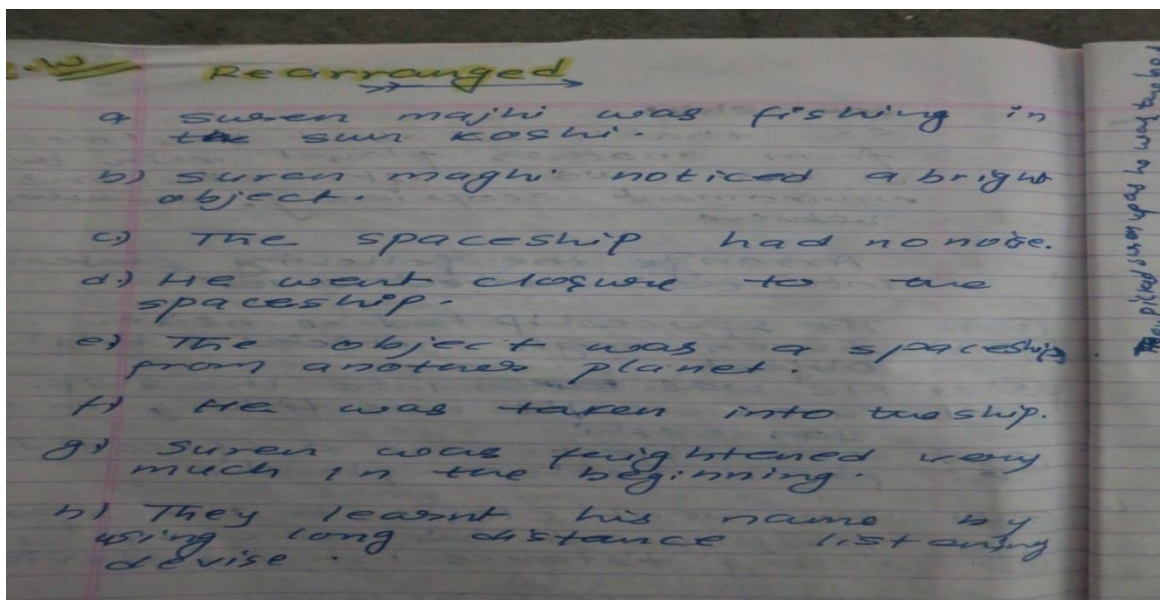 C.W Rearranged
a Suren majhi was fishing in
the sun Koshi.
b) Suren maghi noticed a bright
object.
c) The spaceship had no noise.
d) He went closure to the
spaceship.
e) The object was a spaceship
from another planet.
f) He was taken into the ship.
g) Suren was frightened very
much in the beginning.
h) They learnt his name by
using long distance listening
devise.
picked suren